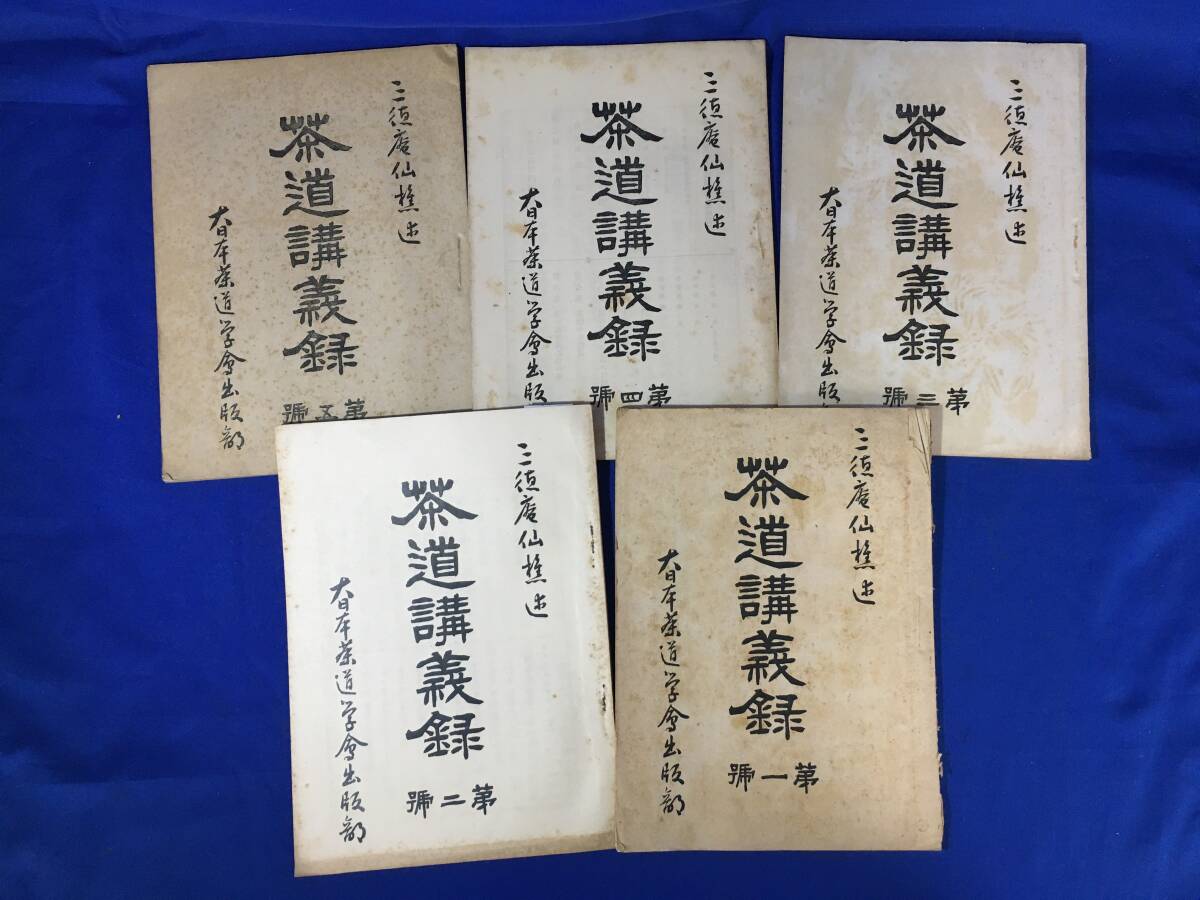 三徳庵仙樵述
茶道講義録
大日本茶道学會出版部
第五號
三徳庵仙樵述
茶道講義録
大日本茶道学會出版
第四號
三徳庵仙樵述
茶道講義録
大日本茶道学會出版
第三號
三徳庵仙樵述
茶道講義録
大日本茶道学會出版部
第二號
三徳庵仙樵述
茶道講義録
大日本茶道学會出版部
第一號